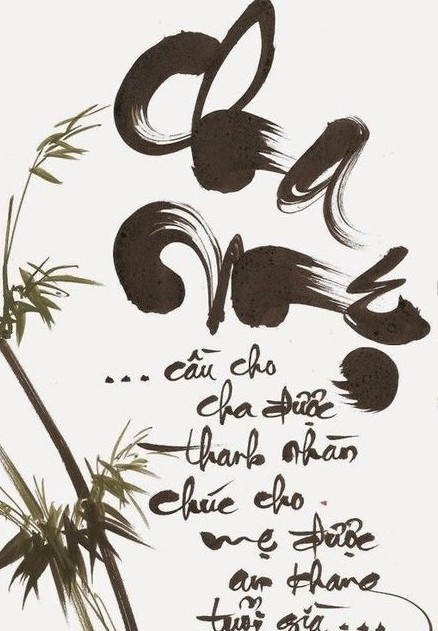 Cha
Mẹ
... cầu cho
cha được
thanh nhàn
chúc cho
mẹ được
an khang
tuổi già ...